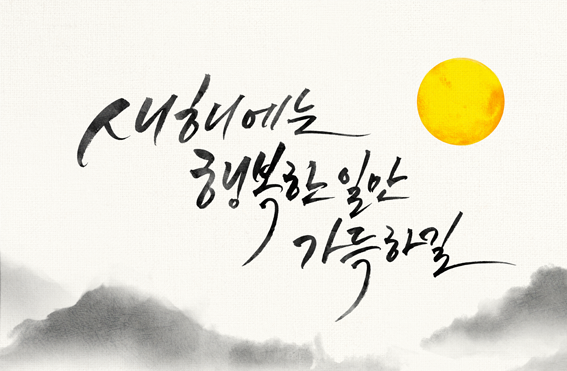 새해에는
행복한 일만
가득하길